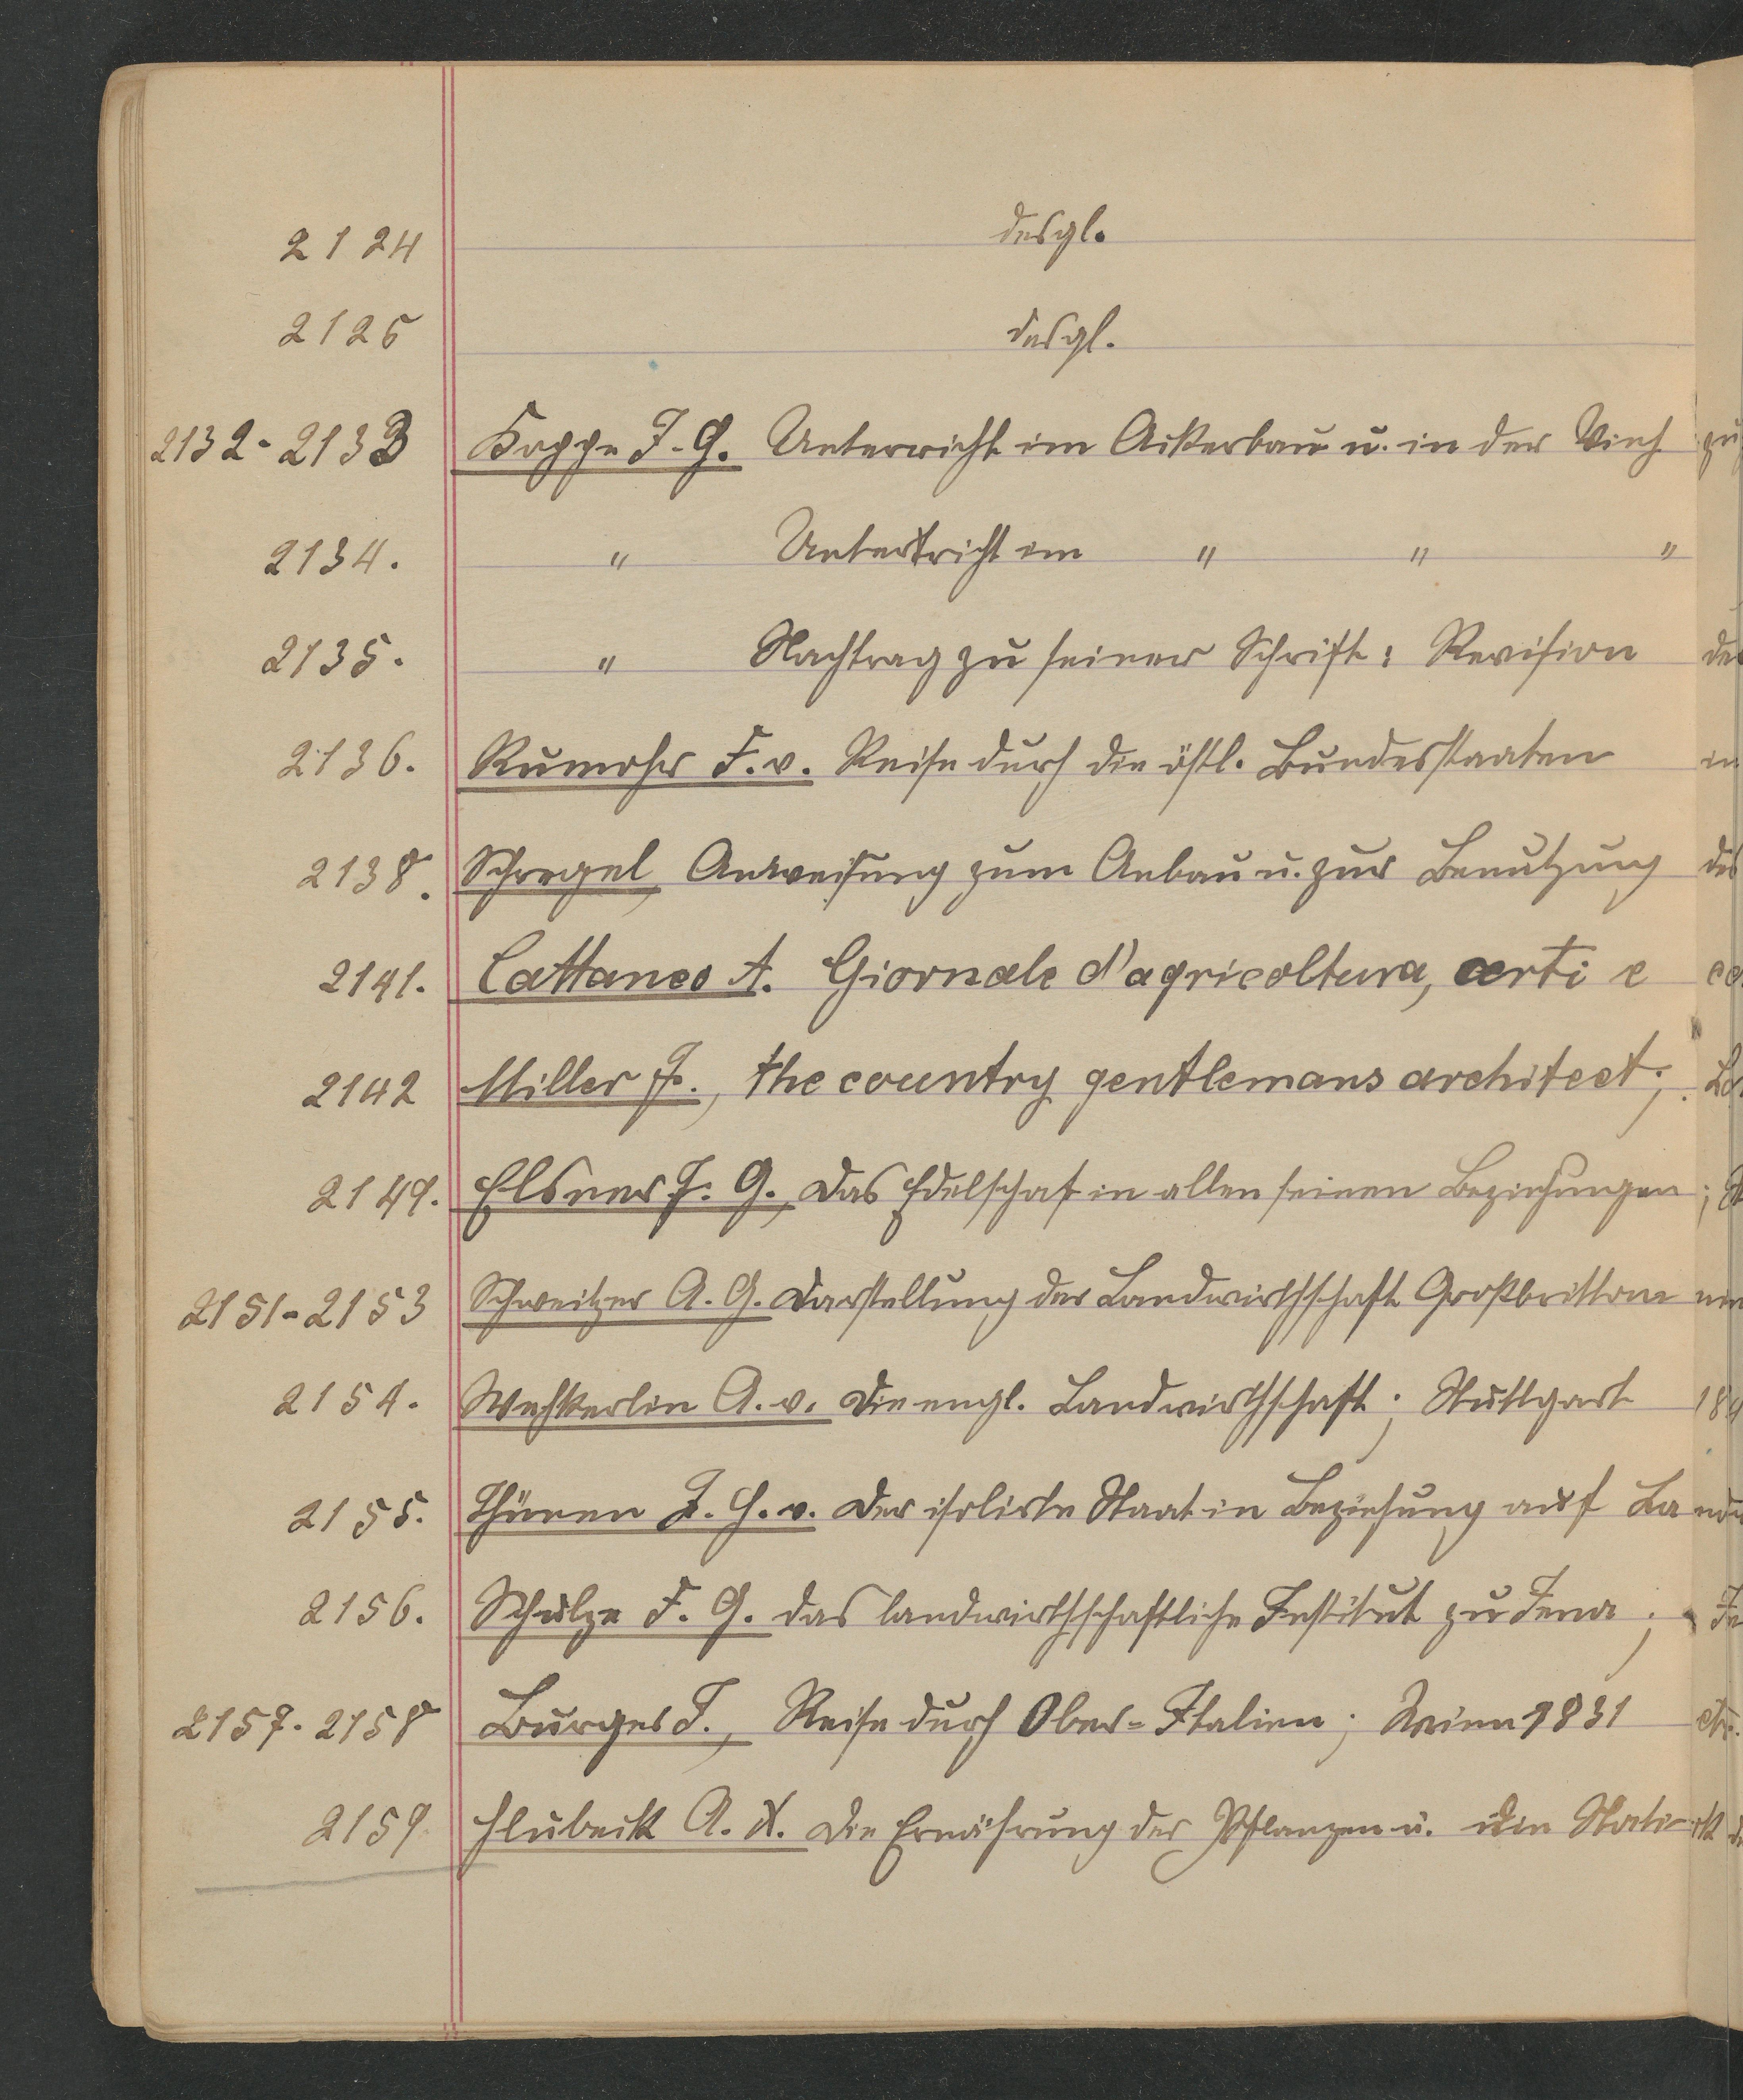 2124 desgl.
2125 desgl.
2132-2133 Koppe J. G. Unterricht im Ackerbau u. in der Vieh zu
2134. " Unterricht im " " "
2135. " Nachtrag zu seiner Schrift: Revision der
2136. Rumohr F. v. Reise durch die östl. Bundesstaaten in
2138. Schregel, Anweisung zum Anbau u. zur Benutzung des
2141. Cattaneo A. Giornale d'agricoltura, arti e co
2142 Miller J., the country gentlemans architect; Lo
2149. Elsner J. G., Das Edelschaf in allen seinen Beziehungen; St
2151-2153 Schweitzer A. G. Darstellung der Landwirthschaft Großbrittan nien
2154. Weckherlin A. v. Die engl. Landwirthschaft; Stuttgart 184
2155. Thünen J. H. v. Der isolirte Staat in Beziehung auf La ndw
2156. Schulze F. G. das landwirthschaftliche Institut zu Jena; Je
2157-2158 Burger J., Reise durch Ober-Italien; Wien 1831 etc.
2159 Hlubeck A. X. Die Ernährung der Pflanzen u. die Stati- ik d